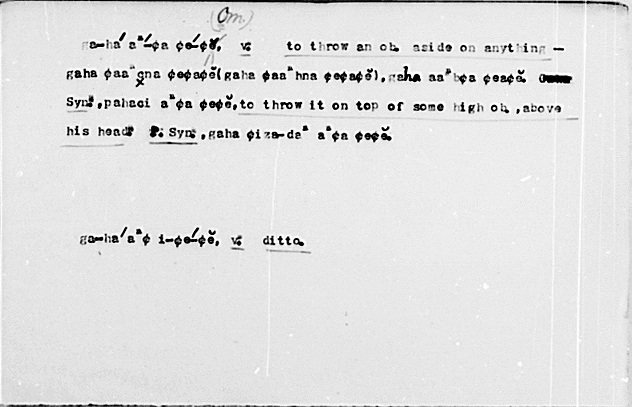 (Om.)
ga-ha´ aⁿ´-¢a ¢e´-¢ĕ, v: to throw an ob. aside on anything —
gaha ¢aaⁿxna ¢e¢a¢ĕ(gaha ¢aaⁿhna ¢e¢a¢ĕ),gaha aaⁿb¢a ¢ea¢ĕ.
Syn:,pahaci aⁿ¢a ¢e¢ĕ,to throw it on top of some high ob.,above
his head: Syn:,gaha ¢iza-daⁿ aⁿ¢a ¢e¢ĕ.
ga-ha´aⁿ¢ i-¢e´-¢ĕ, v: ditto.